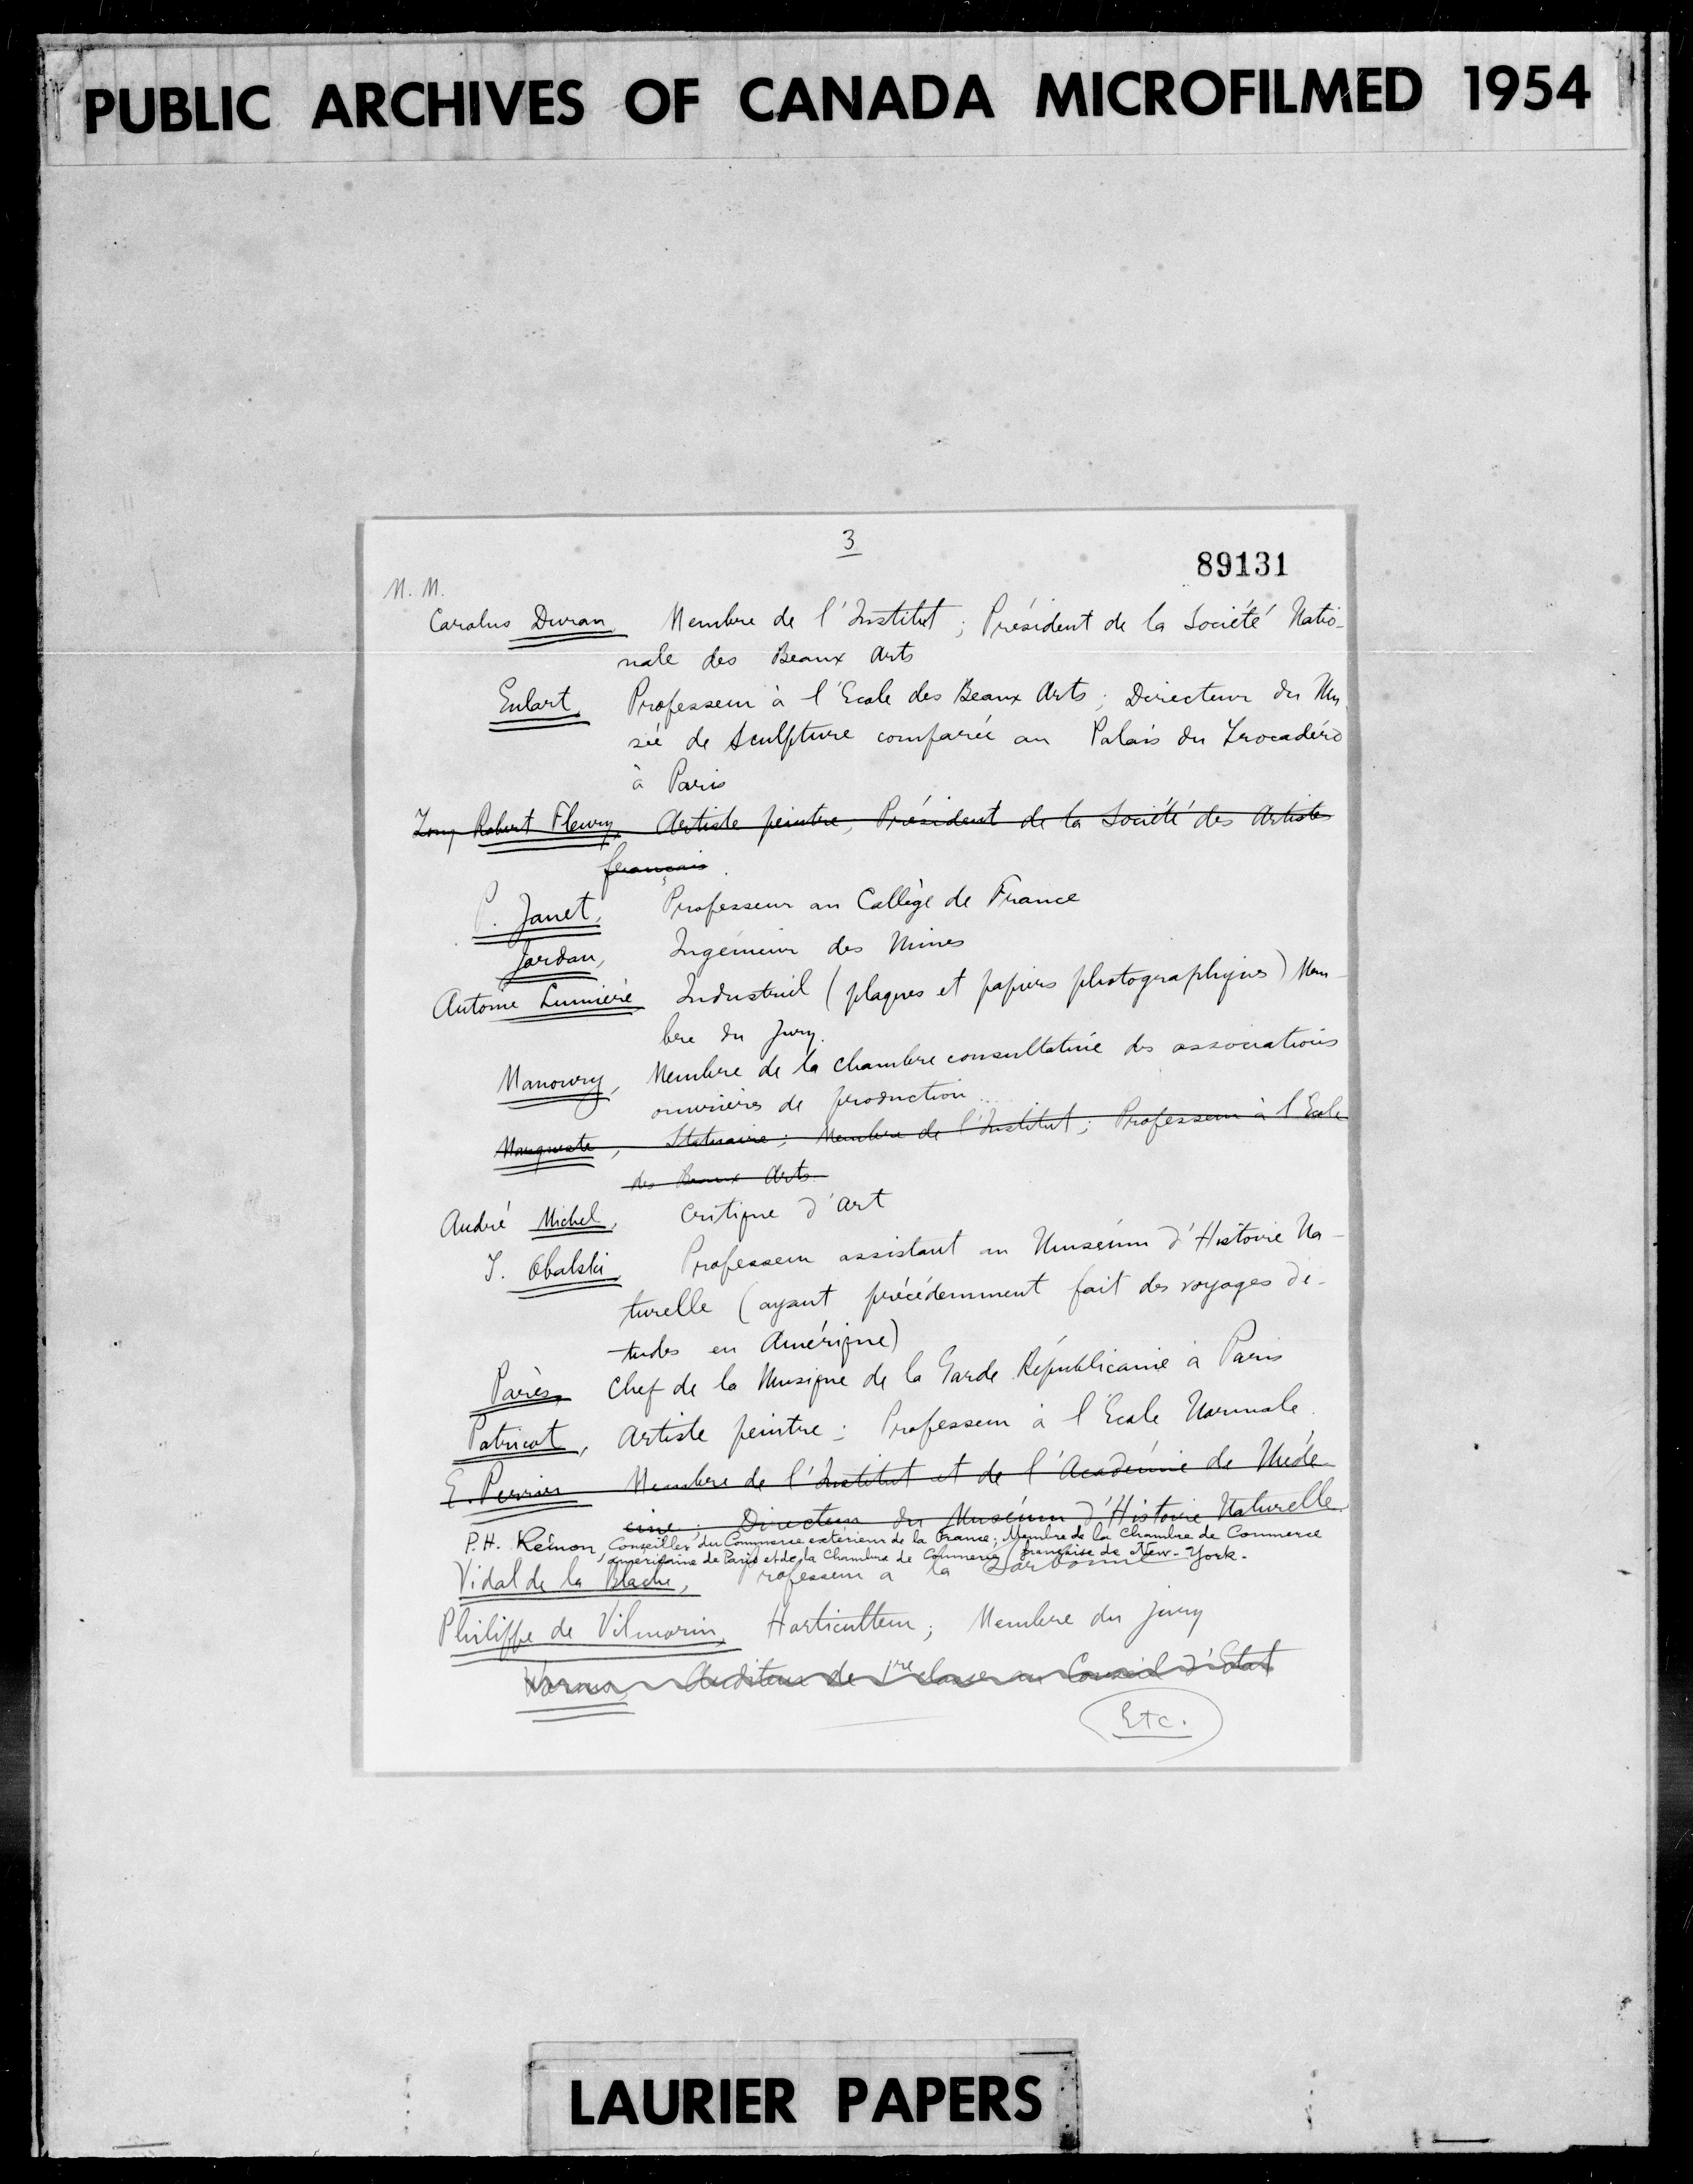 PUBLIC ARCHIVES OF CANADA MICROFILMED 1954
3
89131
M. M.
Carolus Duran, Membre de l'Institut ; Président de la Société Natio-
nale des Beaux Arts
Enlart, Professeur à l'Ecole des Beaux Arts ; Directeur du Mu-
sée de Sculpture comparée au Palais du Trocadéro
à Paris
Tony Robert Fleury, Artiste peintre, Président de la Société des Artistes
français.
P. Janet, Professeur au Collège de France
Jordan, Ingénieur des Mines
Antoine Lumière, Industriel (plaques et papiers photographiques) Mem-
bre du Jury.
Manoury, Membre de la Chambre consultative des associations
ouvrières de production...
Marqueste, Statuaire ; Membre de l'Institut ; Professeur à l'Ecole
des Beaux Arts
André Michel, Critique d'Art
J. Obalski, Professeur assistant au Muséum d'Histoire Na-
turelle (ayant précédemment fait des voyages d'é-
tudes en Amérique)
Parès, Chef de la Musique de la Garde Républicaine à Paris
Patricot, Artiste peintre ; Professeur à l'Ecole Normale.
E. Perrier Membre de l'Institut et de l'Académie de Méde-
cine ; Directeur du Muséum d'Histoire Naturelle.
P.H. Rémon, Conseiller du Commerce extérieur de la France ; Membre de la Chambre de Commerce
américaine de Paris et de la Chambre de Commerce française de New-York.
Vidal de la Blache, Professeur à la Sorbonne
Philippe de Vilmorin, Horticulteur ; Membre du Jury
Worms, Auditeur de 1re classe au Conseil d'Etat
Etc.
LAURIER PAPERS